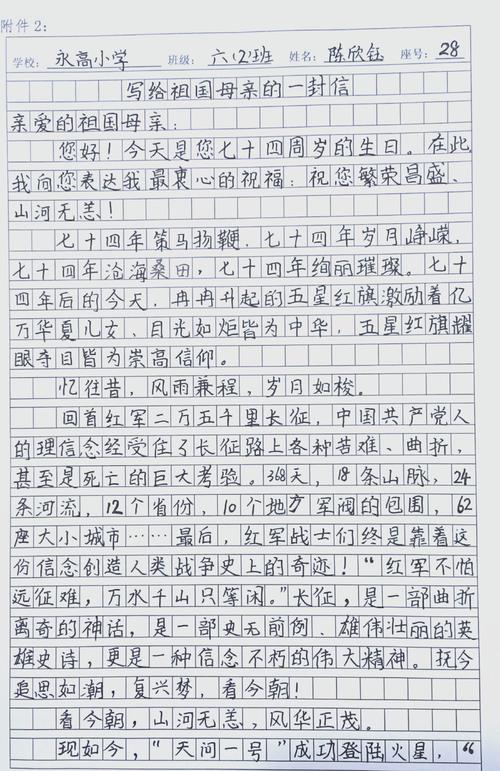 附件2：
学校：永高小学 班级：六(2)班 姓名：陈欣钰 座号：28
写给祖国母亲的一封信
亲爱的祖国母亲：
您好！今天是您七十四周岁的生日。在此
我向您表达我最衷心的祝福：祝您繁荣昌盛、
山河无恙！
七十四年策马扬鞭，七十四年岁月峥嵘，
七十四年沧海桑田，七十四年绚丽璀璨。七十
四年后的今天，冉冉升起的五星红旗激励着亿
万华夏儿女、目光如炬皆为中华，五星红旗耀
眼夺目皆为崇高信仰。
忆往昔，风雨兼程，岁月如梭。
回首红军二万五千里长征，中国共产党人
的理信念经受住了长征路上各种苦难、曲折，
甚至是死亡的巨大考验。368天，18条山脉，24
条河流，12个省份，10个地方军阀的包围，62
座大小城市……最后，红军战士们终是靠着这
份信念创造人类战争史上的奇迹！“红军不怕
远征难，万水千山只等闲。”长征，是一部曲折
离奇的神话，是一部史无前例、雄伟壮丽的英
雄史诗，更是一种信念不朽的伟大精神。抚今
追思如潮，复兴梦，看今朝！
看今朝，山河无恙，风华正茂。
现如今，“天问一号”成功登陆火星，“